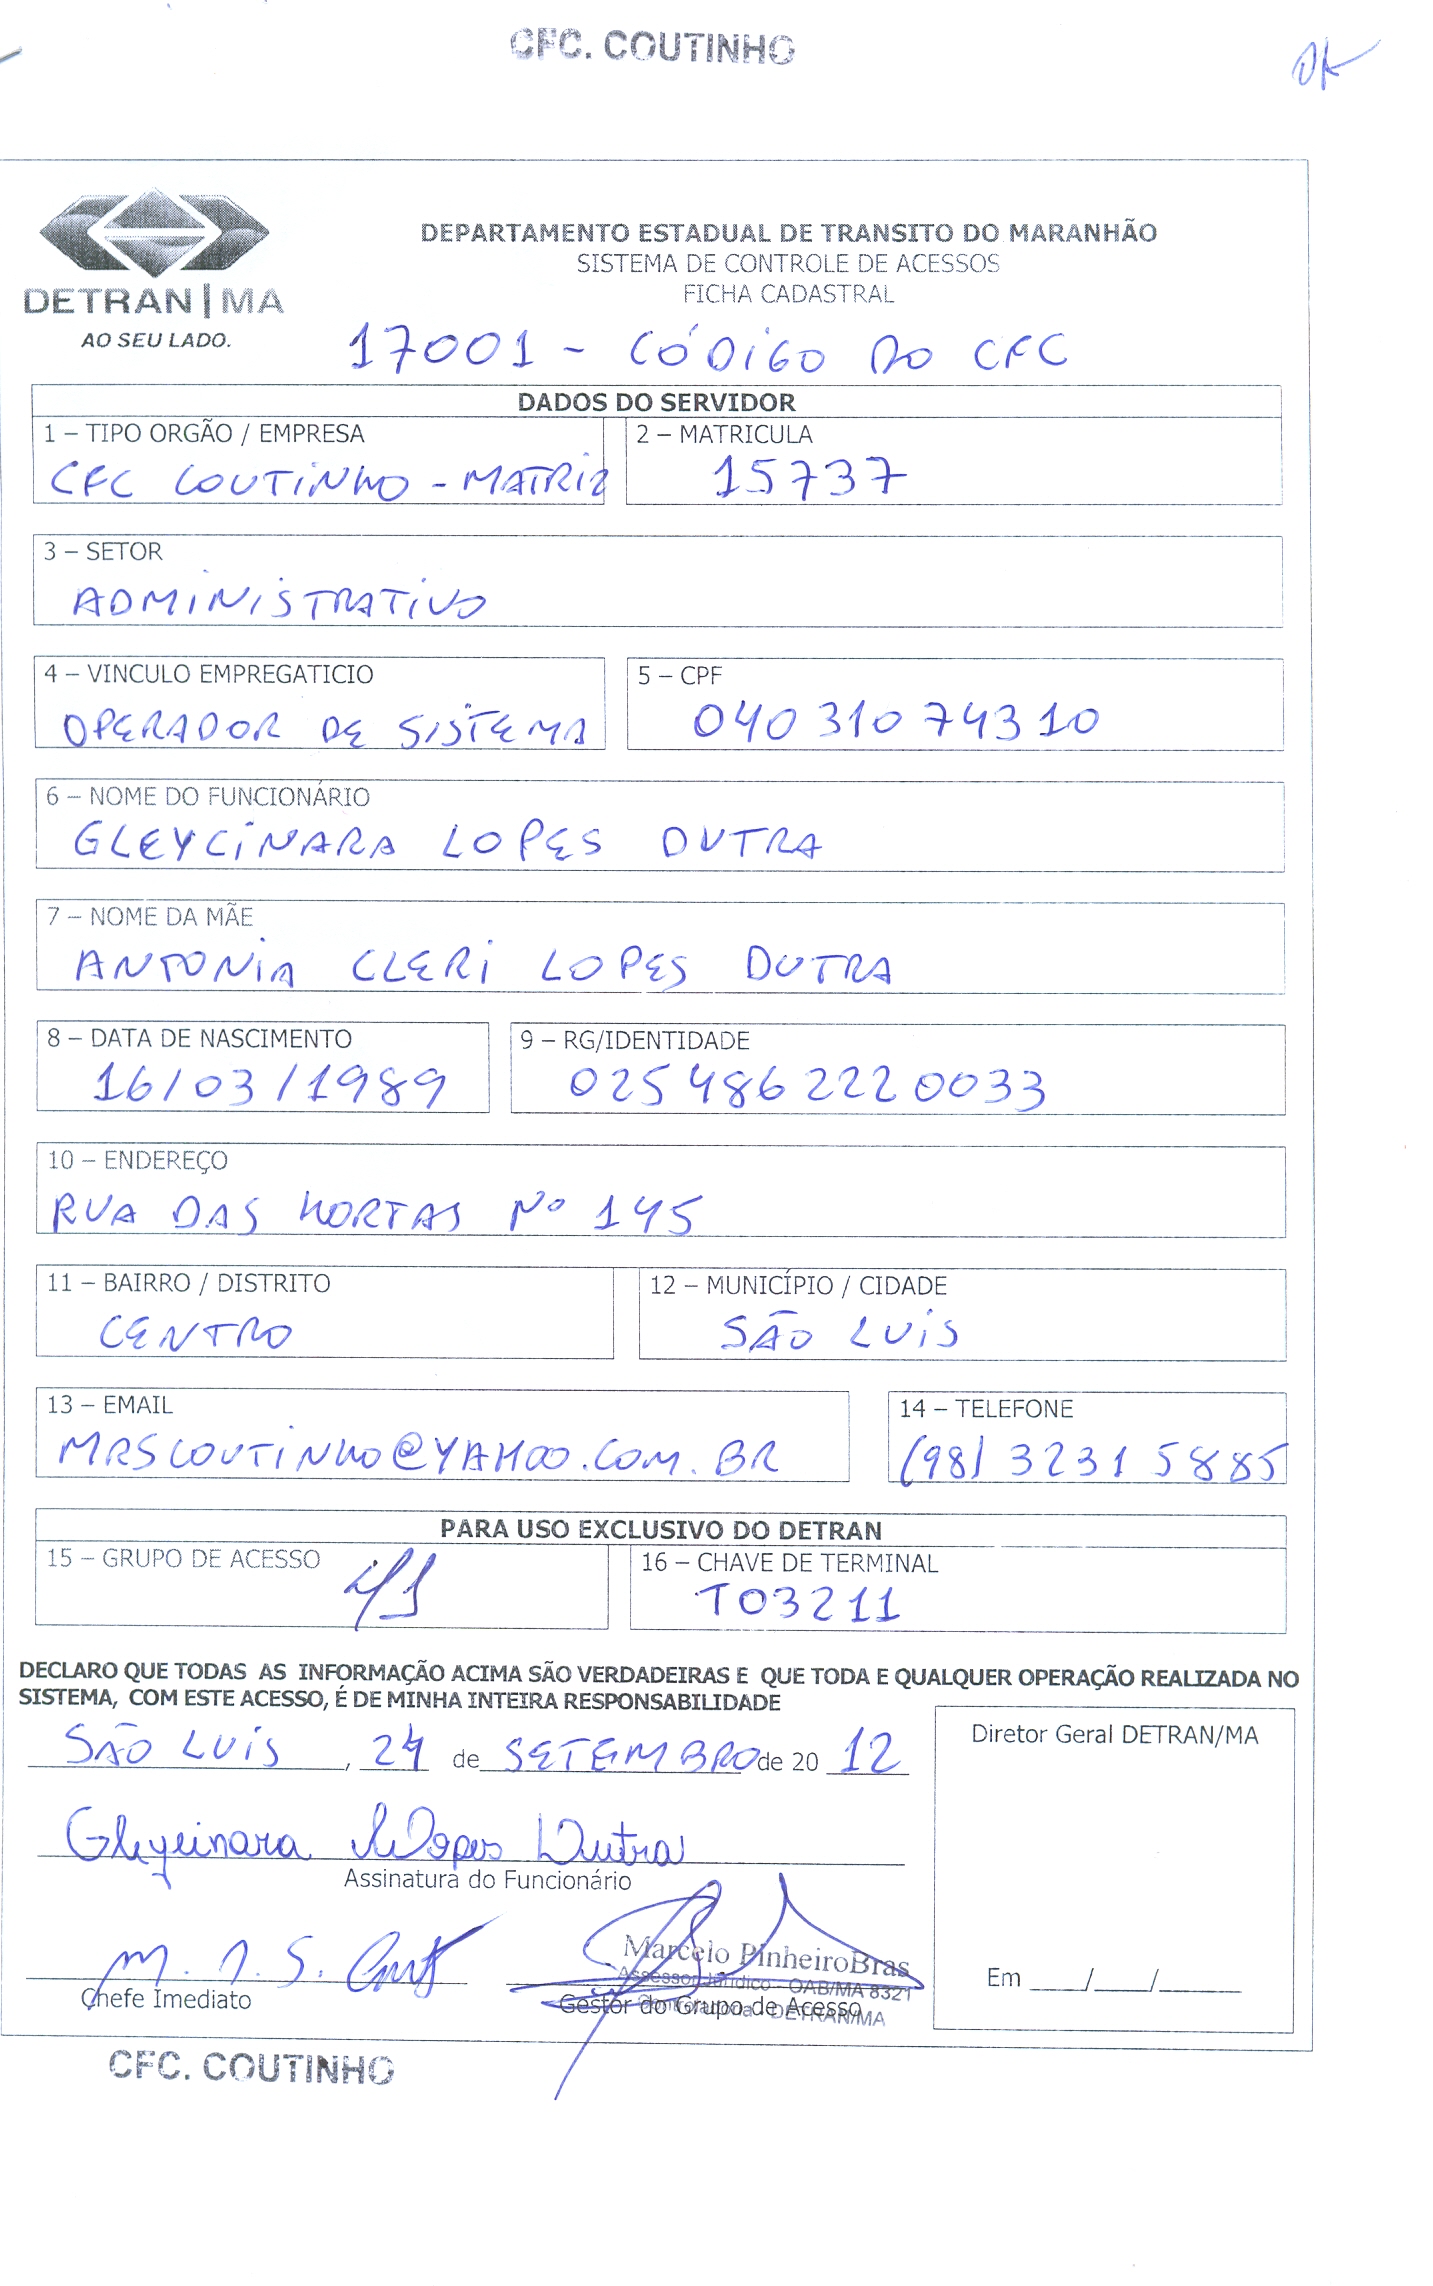 CFC. COUTINHO
OK
DETRAN|MA
AO SEU LADO.
DEPARTAMENTO ESTADUAL DE TRANSITO DO MARANHÃO
SISTEMA DE CONTROLE DE ACESSOS
FICHA CADASTRAL
17001 - CÓDIGO DO CFC
DADOS DO SERVIDOR
1 – TIPO ORGÃO / EMPRESA
CFC COUTINHO - MATRIZ
2 – MATRICULA
15737
3 – SETOR
ADMINISTRATIVO
4 – VINCULO EMPREGATICIO
OPERADOR DE SISTEMA
5 – CPF
040 310 743 10
6 – NOME DO FUNCIONÁRIO
GLEYCINARA LOPES DUTRA
7 – NOME DA MÃE
ANTONIA CLERI LOPES DUTRA
8 – DATA DE NASCIMENTO
16/03/1989
9 – RG/IDENTIDADE
025486222 0033
10 – ENDEREÇO
RUA DAS HORTAS Nº 145
11 – BAIRRO / DISTRITO
CENTRO
12 – MUNICÍPIO / CIDADE
SÃO LUIS
13 – EMAIL
MRSCOUTINHO@YAHOO.COM.BR
14 – TELEFONE
(98) 3231 5885
PARA USO EXCLUSIVO DO DETRAN
15 – GRUPO DE ACESSO
16 – CHAVE DE TERMINAL
T03211
DECLARO QUE TODAS AS INFORMAÇÃO ACIMA SÃO VERDADEIRAS E QUE TODA E QUALQUER OPERAÇÃO REALIZADA NO
SISTEMA, COM ESTE ACESSO, É DE MINHA INTEIRA RESPONSABILIDADE
SÃO LUIS, 24 de SETEMBRO de 20 12
Gleycinara Lopes Dutra
Assinatura do Funcionário
M. R. S.
Chefe Imediato
Marcelo PinheiroBras
Assessor Jurídico - OAB/MA 8321
DETRAN/MA
Gestor do Grupo de Acesso
Diretor Geral DETRAN/MA
Em ____/____/______
CFC. COUTINHO